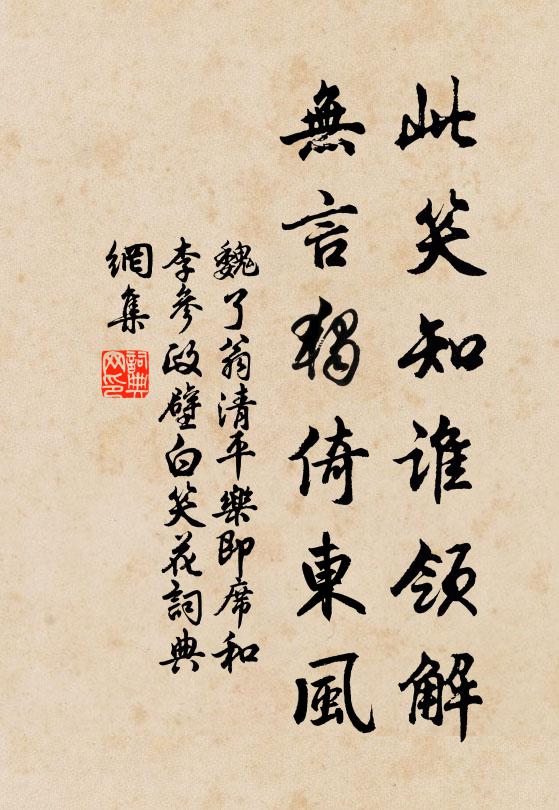 此笑知誰領解
無言獨倚東風
魏了翁清平樂即席和
李參政壁白笑花詞典
網集
詞典網印